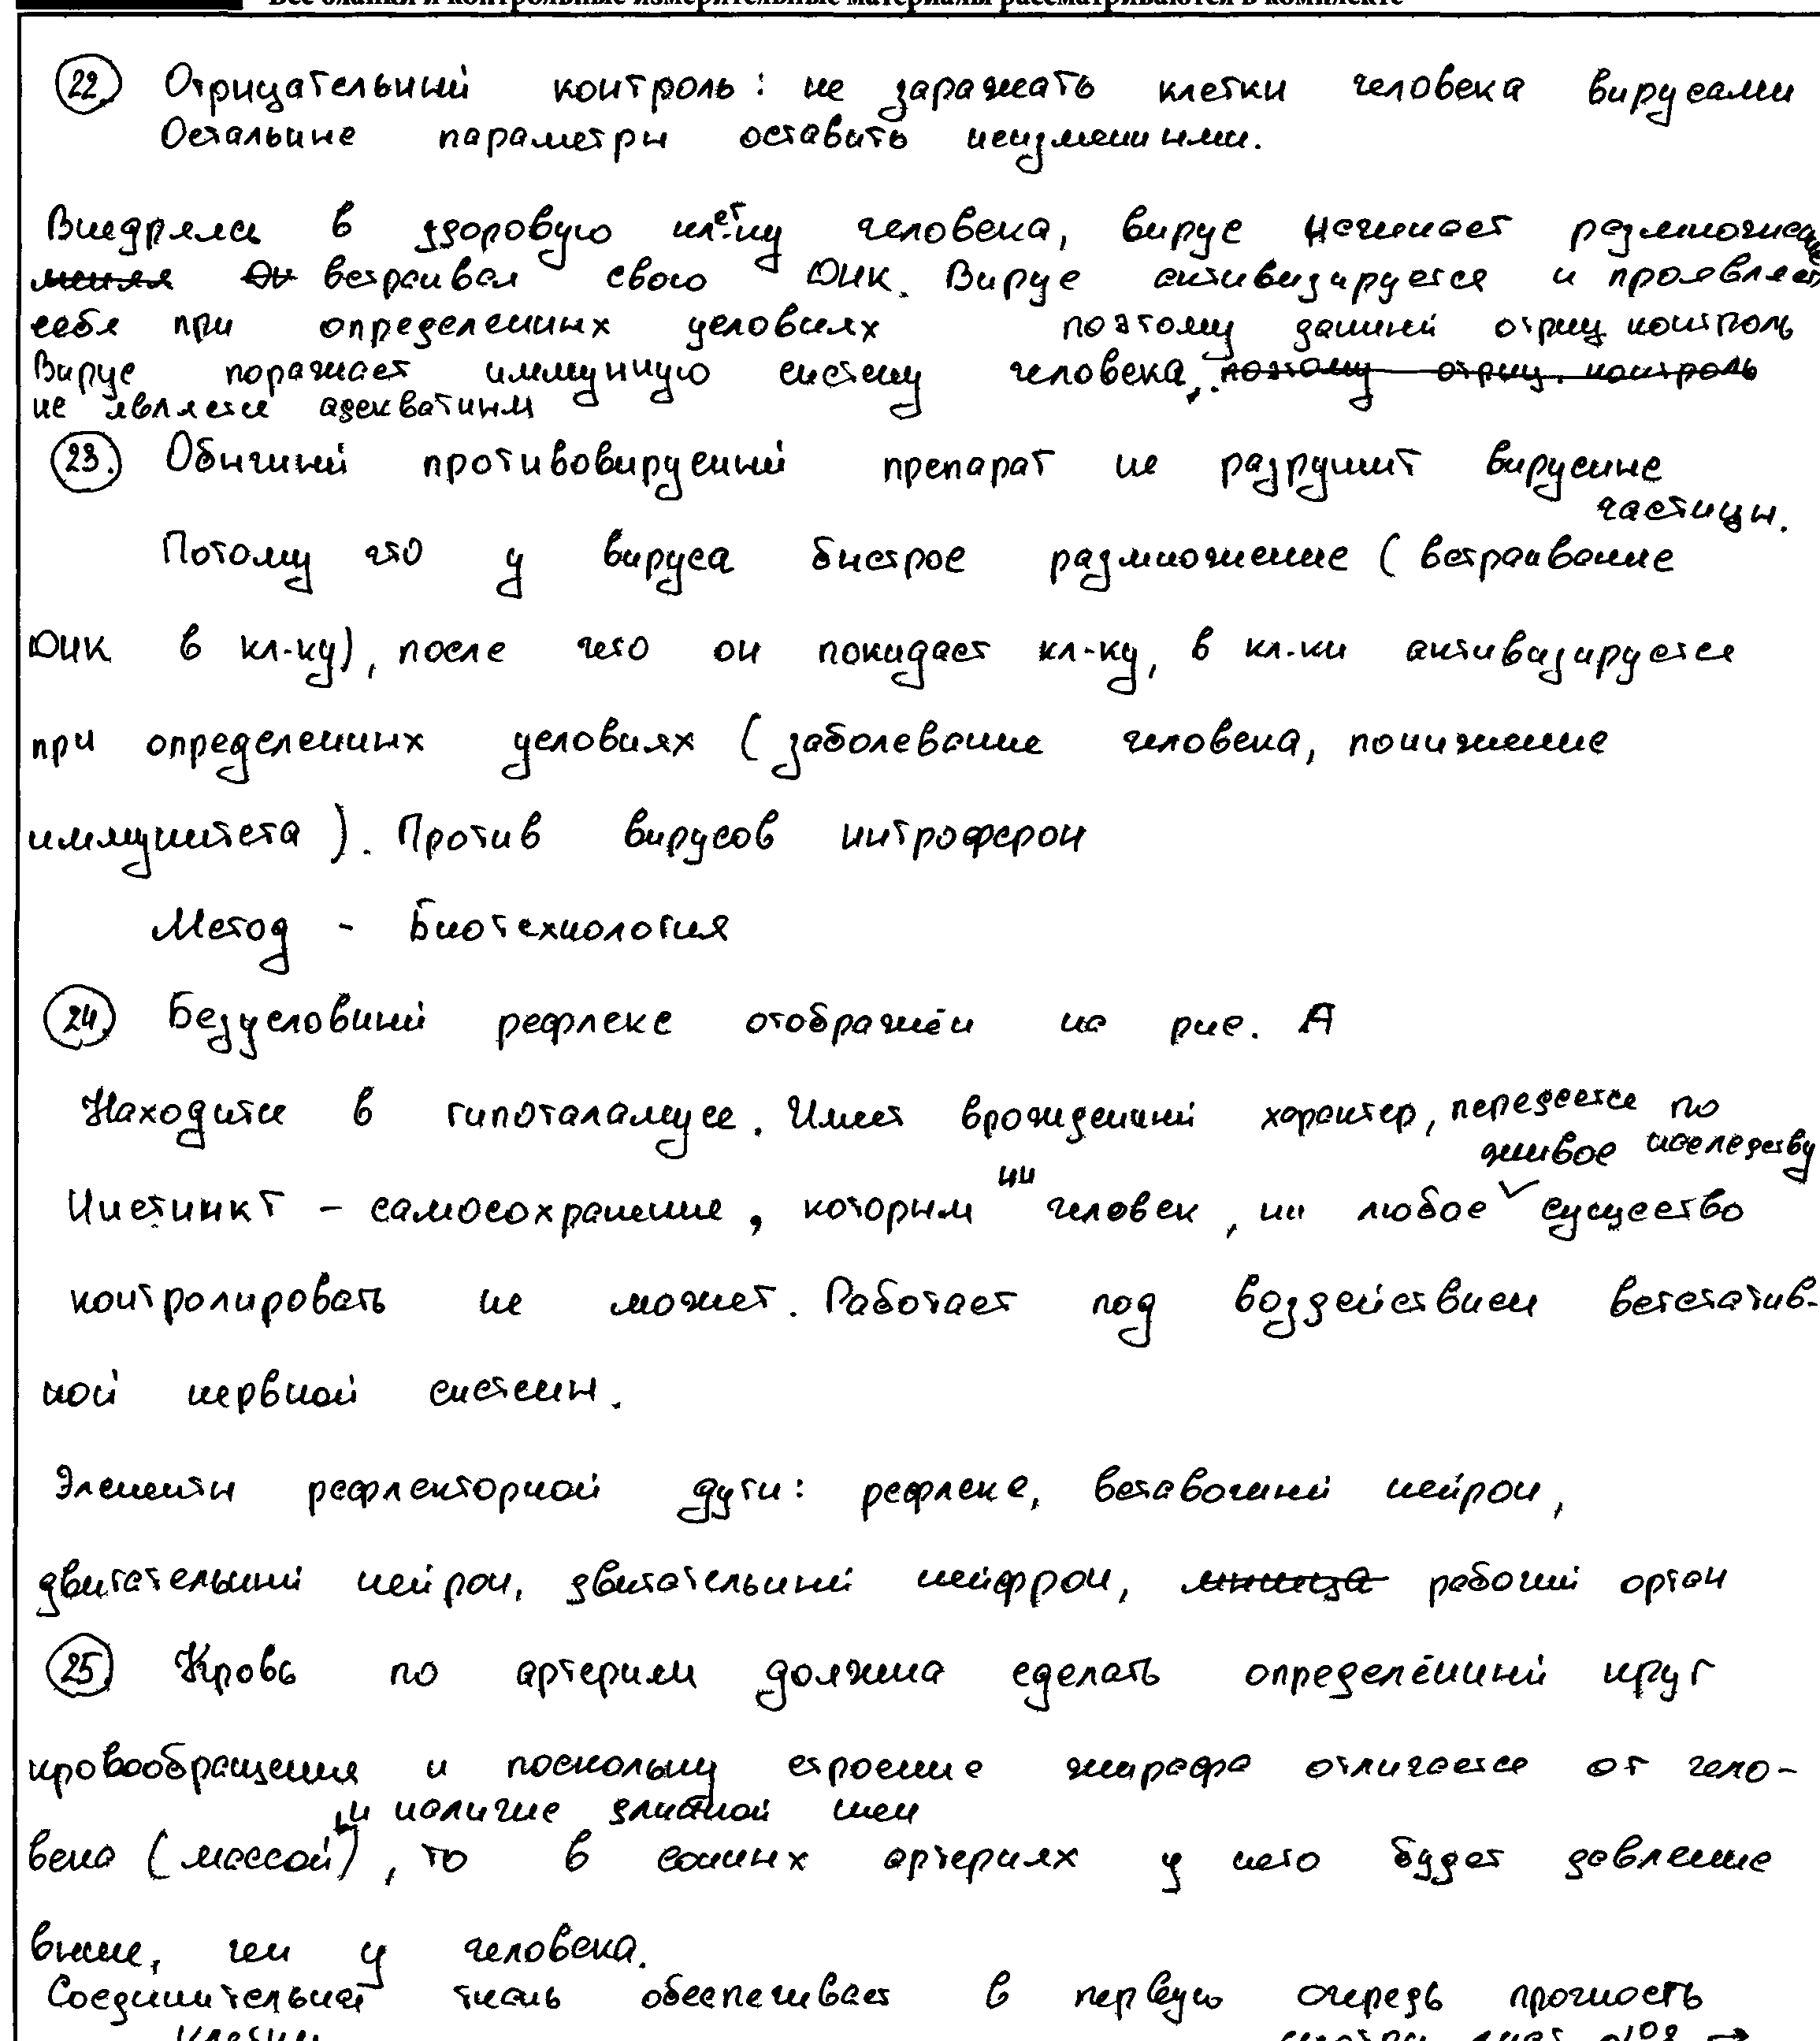 Все бланки и контрольные измерительные материалы рассматриваются в комплекте
22. Отрицательный контроль: не заражать клетки человека вирусами
Остальные параметры оставить неизмениными.
Внедряясь в здоровую клетку человека, вирус начинает размножение
меняя Он встраивая свою ДНК. Вирус активизируется и проявляет
себя при определенных условиях поэтому данный отриц контроль
Вирус поражает иммунную систему человека, поэтому отриц. контроль
не является адекватным
23. Обычный противовирусный препарат не разрушит вирусные
частицы.
Потому что у вируса быстрое размножение (встраивание
ДНК в кл-ку), после чего он покидает кл-ку, в кл-ки активизируется
при определенных условиях (заболевание человека, понижение
иммунитета). Против вирусов интроферон
Метод - Биотехнология
24. Безусловный рефлекс отображён на рис. А
Находится в гипоталамусе. Имеет врожденный характер, передается по
наследству
Инстинкт - самосохранение, которым ни человек, ни любое живое существо
контролировать не может. Работает под воздействием вегетатив-
ной нервной системы.
Элементы рефлекторной дуги: рефлекс, вставочный нейрон,
двигательный нейрон, двигательный нейфрон, мышца рабочий орган
25. Кровь по артериям должна сделать определённый круг
кровообращения и поскольку строение жирафа отличается от чело-
и наличие длинной шеи
века (массой), то в сонных артериях у него будет давление
выше, чем у человека.
Соединительная ткань обеспечивает в первую очередь прочность